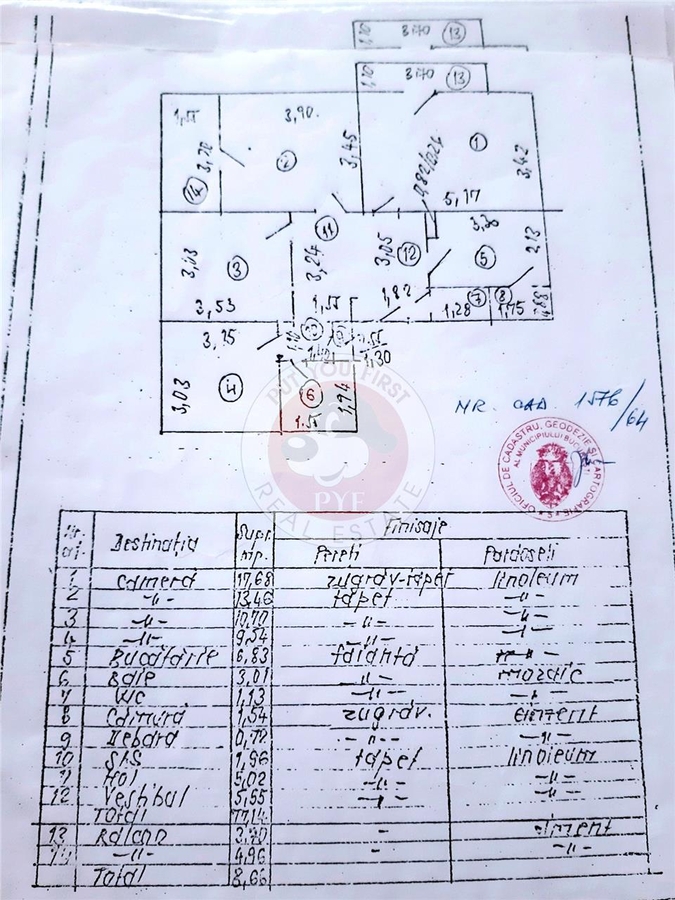 1,10 3,70 13
1,10 3,70 13
1,55 3,90 3,45 1 3,42
2 3,20 14
0,82/0,24 5,17
3,03 3 3,24 11 3,05 12 3,20 5 2,13
3,53 1,55 1,82 1,28 7 8 1,75 0,88
3,15 10 9 0,55
1,42 1,30
3,03 4 6 1,94
1,55
NR. CAD 1576/64
OFICIUL DE CADASTRU, GEODEZIE ȘI CARTOGRAFIE
AL MUNICIPIULUI BUCUREȘTI
PUT YOU FIRST
PYF
REAL ESTATE
Nr. Destinația Supr. mp. Finisaje
Pereti Pardoseli
1 Cameră 17,68 zugrăv-tapet linoleum
2 -"- 13,46 tapet -"-
3 -"- 10,70 -"- -"-
4 -"- 9,54 -"- -"-
5 Bucătărie 6,83 faianță -"-
6 Baie 3,01 -"- mozaic
7 WC 1,13 -"- -"-
8 Cămară 1,54 zugrăv. ciment
9 Debara 0,72 -"- -"-
10 SAS 1,96 tapet linoleum
11 Hol 5,02 -"- -"-
12 Vestibul 5,55 -"- -"-
Total 77,14
13 Balcon 3,70 - ciment
14 -"- 4,96 - -"-
Total 8,66